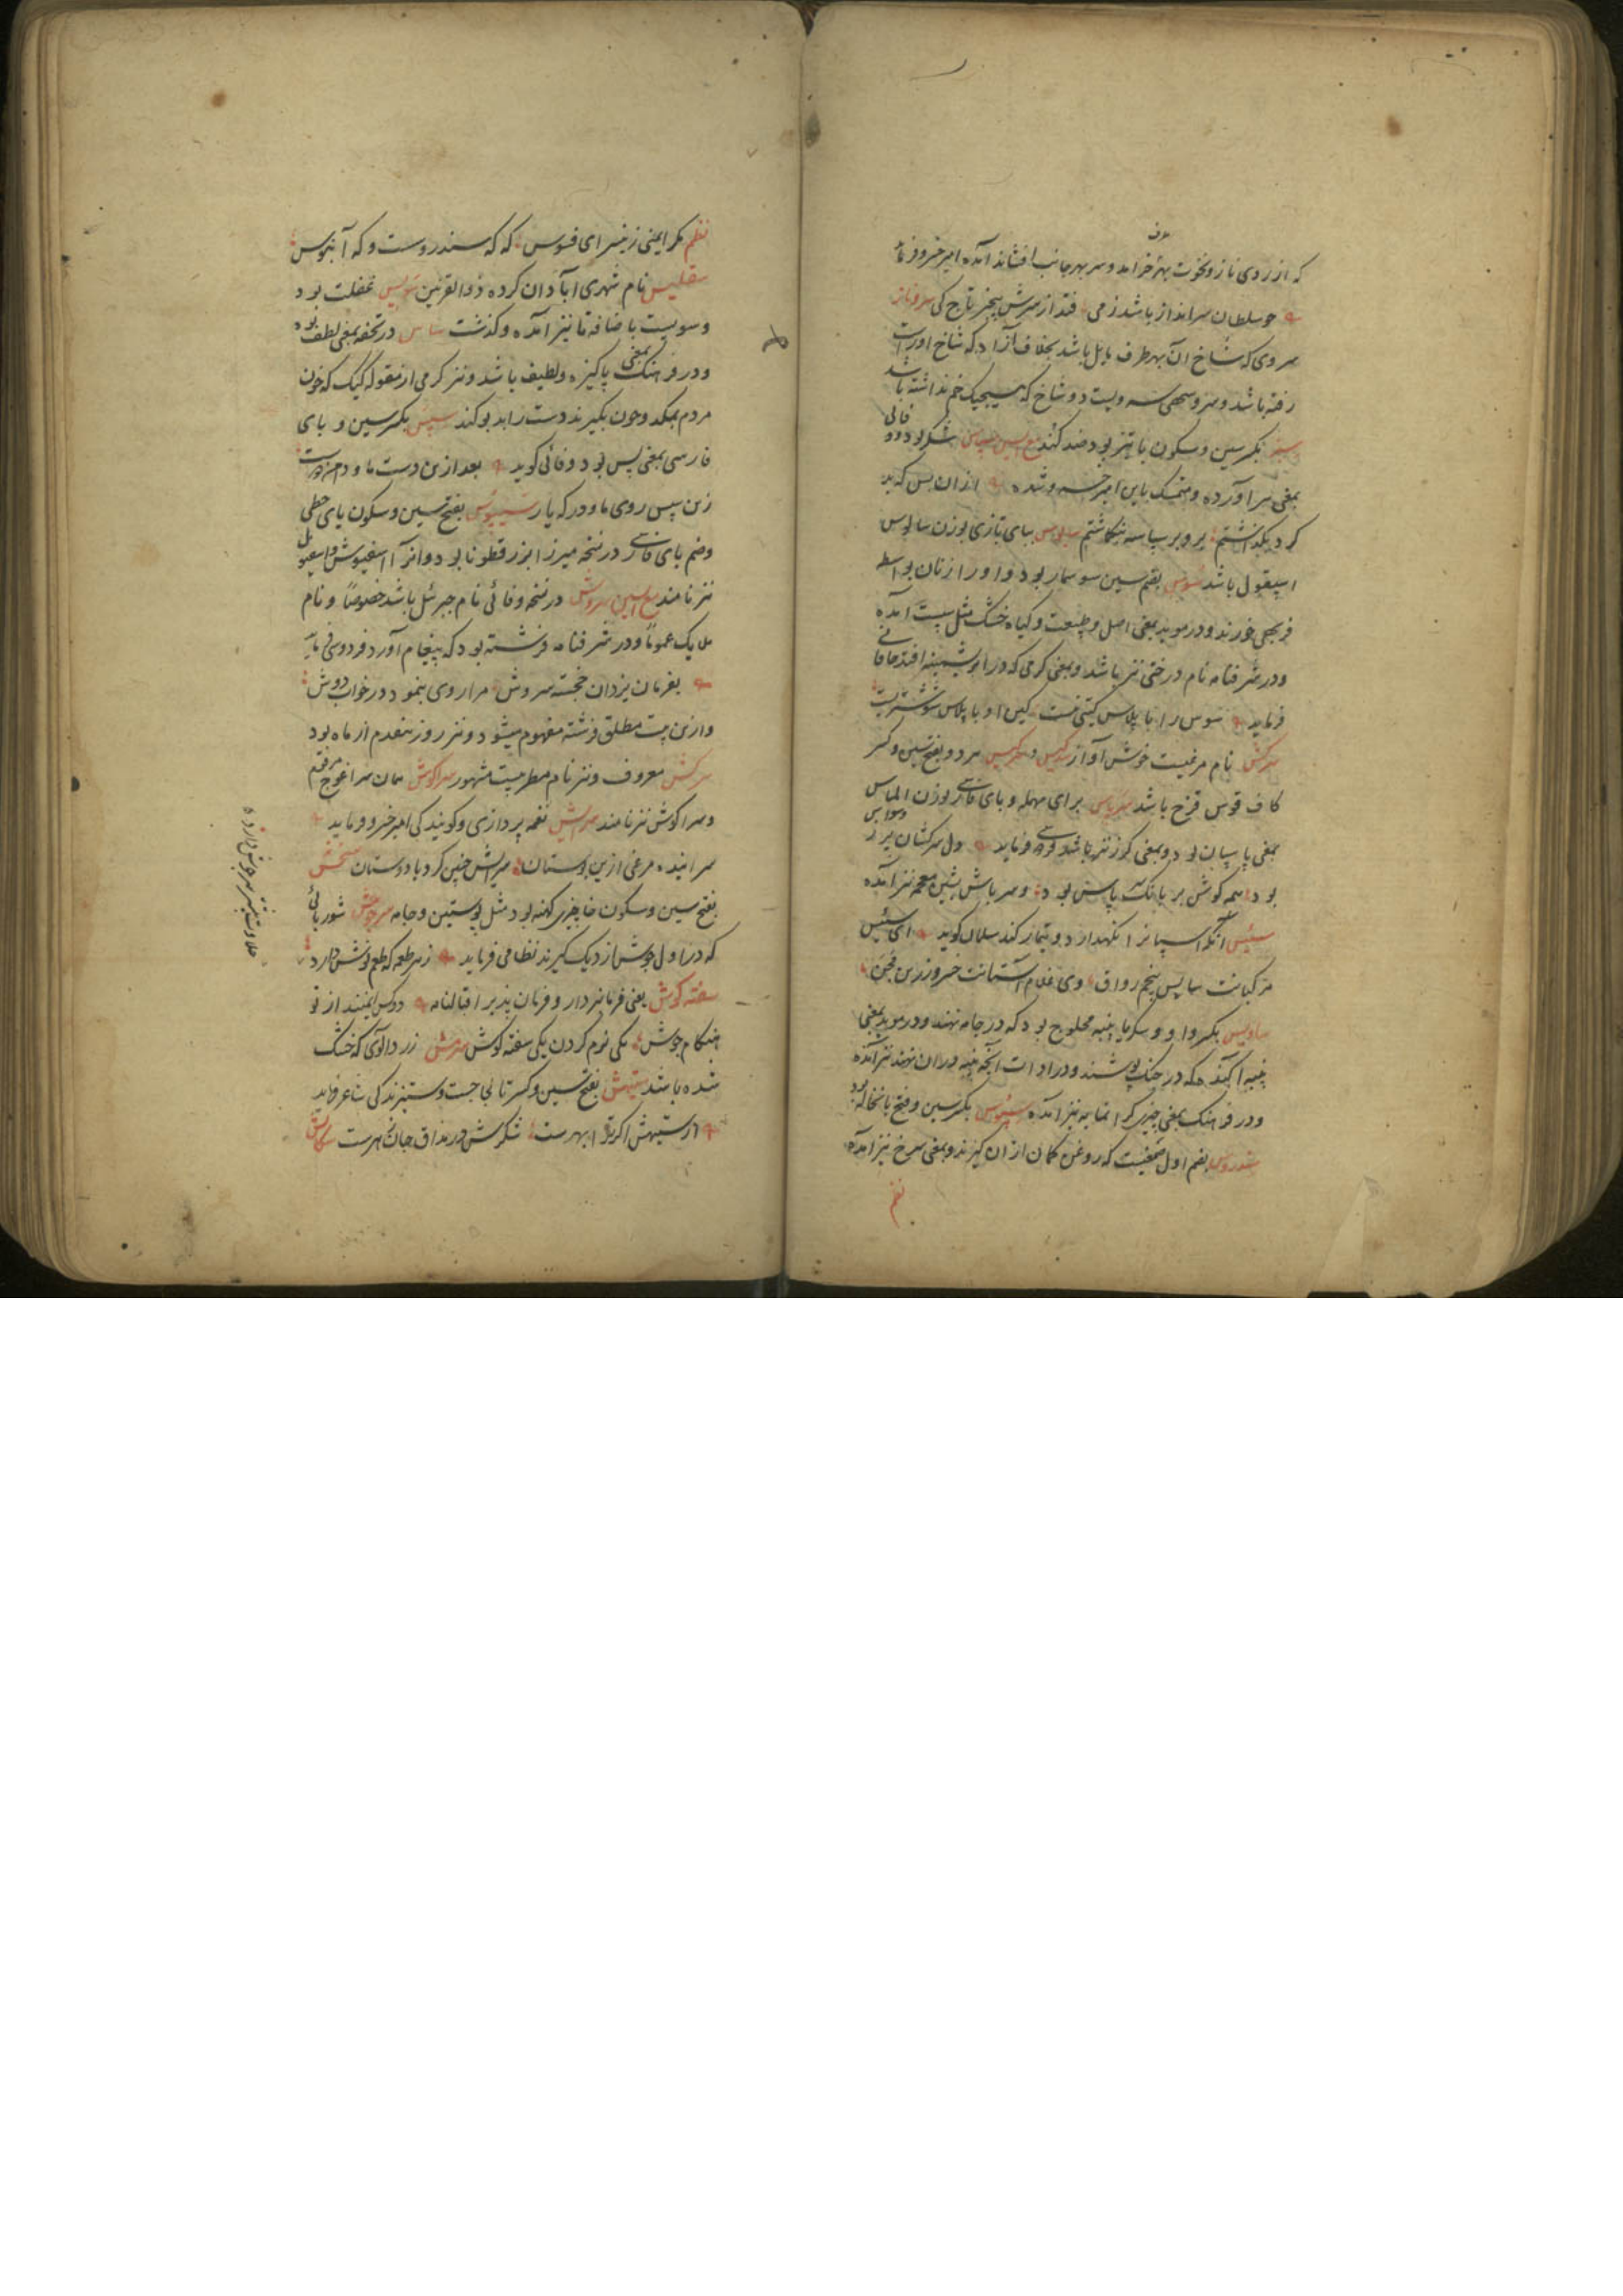 که از روی ناز و نخوت بهر خرامد و سر بهر جانب افشاند آمده امیر خسرو فرماید
چو سلطان سرانداز باشد ز می فتد از سرش نیز تاج کی سروناز
سروی که شاخ آن بهر طرف مایل باشد بخلاف آزاد که شاخ او راست
رفته باشد و سرو سهی سه و بیست دو شاخ که هیچیک خم نداشته باشد
بکسر سین و سکون با تیز بود ضد کند مع السین
بمعنی سر آورده و متمسک باین امیر خسرو شده از آن پس که بد
کرد بگذاشتم برو بر سپاسه بنکاشتم ببای تازی بوزن سالوس
اسپغول باشد سوس بضم سین سوسمار بود و او را زنان بواسطه
فربهی خورند و در موید بمعنی اصل و طبیعت و گیاه خشک مثل سپست آمده
و در شرفنامه نام درختی نیز باشد و بمعنی کرمی که در ابریشمینه افتد خاقانی
فرماید سوس را با پلاس کینی نیست کین او با پلاس شوشتریست
سرکش نام مرغیست خوش آواز سرکیس هر دو بفتح سین و کسر
کاف قوس قزح باشد سرپاس برای مهمله و بای فارسی بوزن الماس
بمعنی پاسبان بود و بمعنی گرز نیز باشد فرماید دل سرکشان پر ز وسواس
بود همه گوش بر بانگ پاس بود و سرپاش بشین معجمه نیز آمده
سئیس آنکه اسپانرا نگهدارد و تیمار کند سلمان گوید ای سئیس
مرکبانت سایس پنجم رواق وی غلام آستانت خسرو زرین مجن
بکسر واو و پنبه محلوج بود که در جامه نهند و در موید بمعنی
پنبه آگنده که در جنگ پوشند و در ادات آنچه پنبه در آن نهند نیز آمده
و در فرهنگ بمعنی چیزی گرانمایه نیز آمده سبوس بکسر سین و فتح با نخاله بود
سندروس بضم اول صمغیست که روغن کمان از آن گیرند و بمعنی سرخ نیز آمده
نظم
نظم مکر ایمنی زین سرای فسوس که که سندروست و که آبنوس
سقلیس نام شهری آبادان کرده ذوالقرنین سویس غفلت بود
و سویست باضافه تا نیز آمده و گذشت ساس در تحفه بمعنی لطف بوده
و در فرهنگ بمعنی پاکیزه و لطیف باشد و نیز کرمی از مقوله کیک که خون
مردم بمکد و چون بگیرند دست را بد بو کند سپس بکسر سین و بای
فارسی بمعنی پس بود وفائی گوید بعد ازین دست ما و دامن دوست
زین سپس روی ما و در که یار سیپوس بفتح سین و سکون یای حطی
و ضم بای فارسی در نسخه میرزا بزر قطونا بود و آنرا اسفیوش و اسپغول
نیز نامند مع الشین سروش در نسخه وفائی نام جبرئل باشد خصوصاً و نام
ملایک عموماً و در شرفنامه فرشته بود که پیغام آورد فردوسی فرماید
بفرمان یزدان خجسته سروش مرا روی بنمود در خواب دوش
و ازین بیت مطلق فرشته مفهوم میشود و نیز روز هفدهم از ماه بود
سرکش معروف و نیز نام مطربیست مشهور سراکوش همان سراغوج مرقوم
و سراکوش نیز نامند سرایش نغمه پردازی و گویندگی امیر خسرو فرماید
سراینده مرغی ازین بوستان سرایش چنین کرد با دوستان سخش
بفتح سین و سکون خا چیزی کهنه بود مثل پوستین و جامه سرجوش شوربائی
که در اول جوش از دیک گیرند نظامی فرماید ز سر طعمه که طعم نوش دارد
حلاوت بیشتر سرجوش دارد
سفته کوش یعنی فرمانبردار و فرمان پذیر اقبالنامه دو کس ایمنند از تو
هنگام جوش یکی نرم گردن یکی سفته گوش زرد آلوی که خشک
شده باشد ستیهش بفتح سین و کسر تا لجاجت و ستیزندگی شاعر فرماید
از ستیهش اگرچه ابهر است شکرش در مذاق جان زهر است سکالش